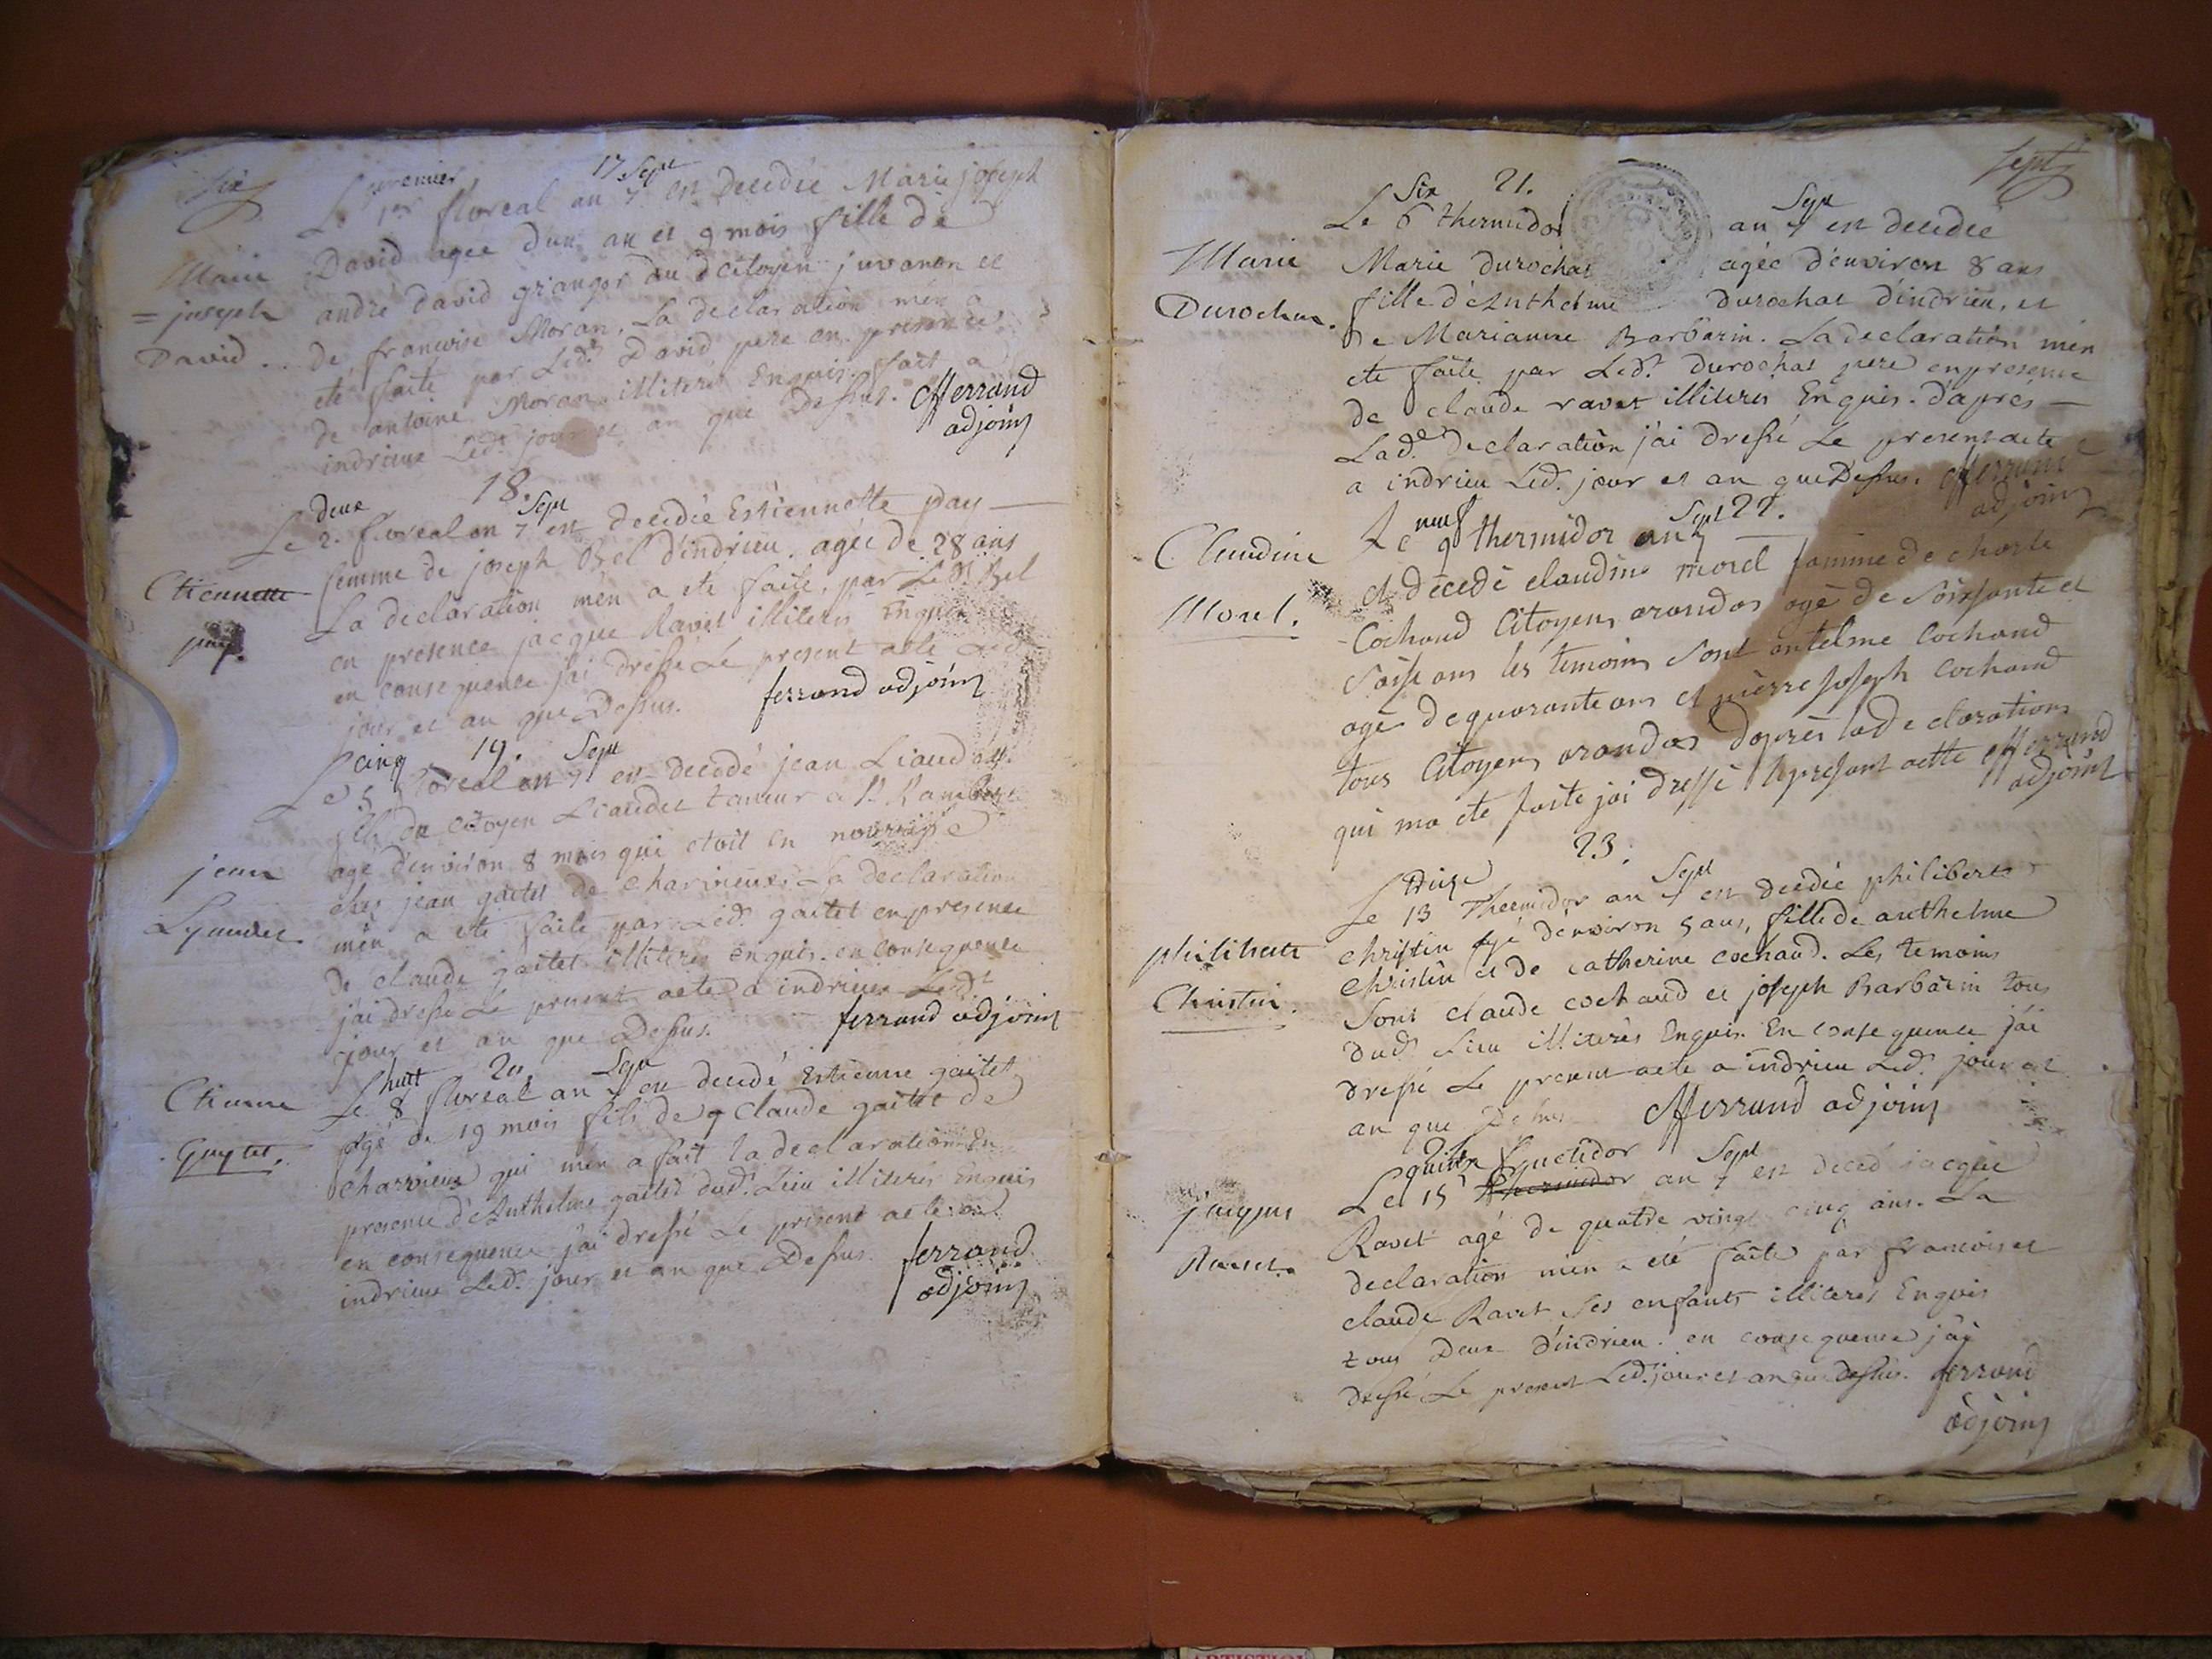 Six
17.
premier Sept
Le 1er floreal an 7 est decedée Marie joseph
Marie
= joseph
David ..
David agée d'un an et 9 mois fille de
andré david granger du d citoyen juvanon et
de francoise Moran. La declaration m'en a
eté faite par Led.t David pere en presence
de antoine Moran illiteré Enquis. fait a
indrieux Led. jour et an que Dessus. Ferrand
adjoint
18.
deux Sept
Le 2. floreal an 7 est decedée Estiennette pay
Etiennette
pay.
femme de joseph Bel d'indrieu. agée de 28 ans
La declaration m'en a eté faite, par Led.t Bel
en presence jacque Ravet illiteré Enquis
en consequence j'ai dressé Le present acte Led
jour et an que Dessus. ferrand adjoint
19.
cinq Sept
Le 5 floreal an 7 est decedé jean Liaudet
fils du citoyen Liaudet taneur a St Rambert
jean
Lyaudet.
agé d'environ 8 mois qui etoit en nourrisse
ches jean gaitet de Charvieux. La declaration
m'en a eté faite par Led. gaitet en presence
de claude gaitet illiteres enquis. en consequence
j'ai dressé Le present acte a indrieux Led.t
jour et an que Dessus. ferrand adjoint
20.
huit Sept
Le 8 floreal an 7 est decedé Estienne gaitet
Etienne
Guytet.
agé de 19 mois fils de Claude gaitet de
Charvieux qui m'en a fait la declaration en
presence d'Anthelme gaitet dud. Lieu illiteres Enquis
en consequence j'ai dressé Le present acte a
indrieux Led. jour et an que Dessus. ferrand
adjoint
Sept
21.
Six Sept
Le 6 thermidor an 7 est decedée
Marie
Durochat.
Marie Durochat agée d'environ 8 ans
fille d'Anthelme Durochat d'indrieu, et
De Marianne Barbarin. La declaration m'en
eté faite par Led.t Durochat pere en presence
de claude ravet illiterés Enquis. d'aprés
Lad.e declaration j'ai dressé Le present acte
a indrieu Led. jour et an que Dessus. Ferrand
adjoint
22.
neuf Sept
Le 9 thermidor an 7
Claudine
Morel.
et décedé claudine morel famme de charle
Cochand Citoyens arandas agé de Soixsante et
Saise ans les temoins Sont antelme Cochand
agé de quarante ans et pierre Joseph Cochand
tous Citoyens arandas daprès la declarations
qui ma été faite jai dressé le presant actte Ferrand
adjoint
23.
treize Sept
Le 13 Thermidor an 7 est decedée philiberte
philiberte
Christin.
Christin agé d'environ 5 ans, fille de anthelme
Christin et de Catherine Cochaud. Les temoins
Sont claude cochaud et joseph Barbarin tous
dud. Lieu illiterés Enquis. En consequence j'ai
dressé Le present acte a indrieu Led. jour et
an que Dessus Ferrand adjoint
quinze fructidor Sept
Le 15 thermidor an 7 est deced jacque
jacques
Ravet.
Ravet agé de quatre vingt cinq ans. La
declaration m'en a eté faite par francois et
claude Ravet ses enfants illiteres Enquis
tous Deux d'indrieu. en consequence j'ai
dressé Le present Led. jour et an que dessus. ferrand
adjoint